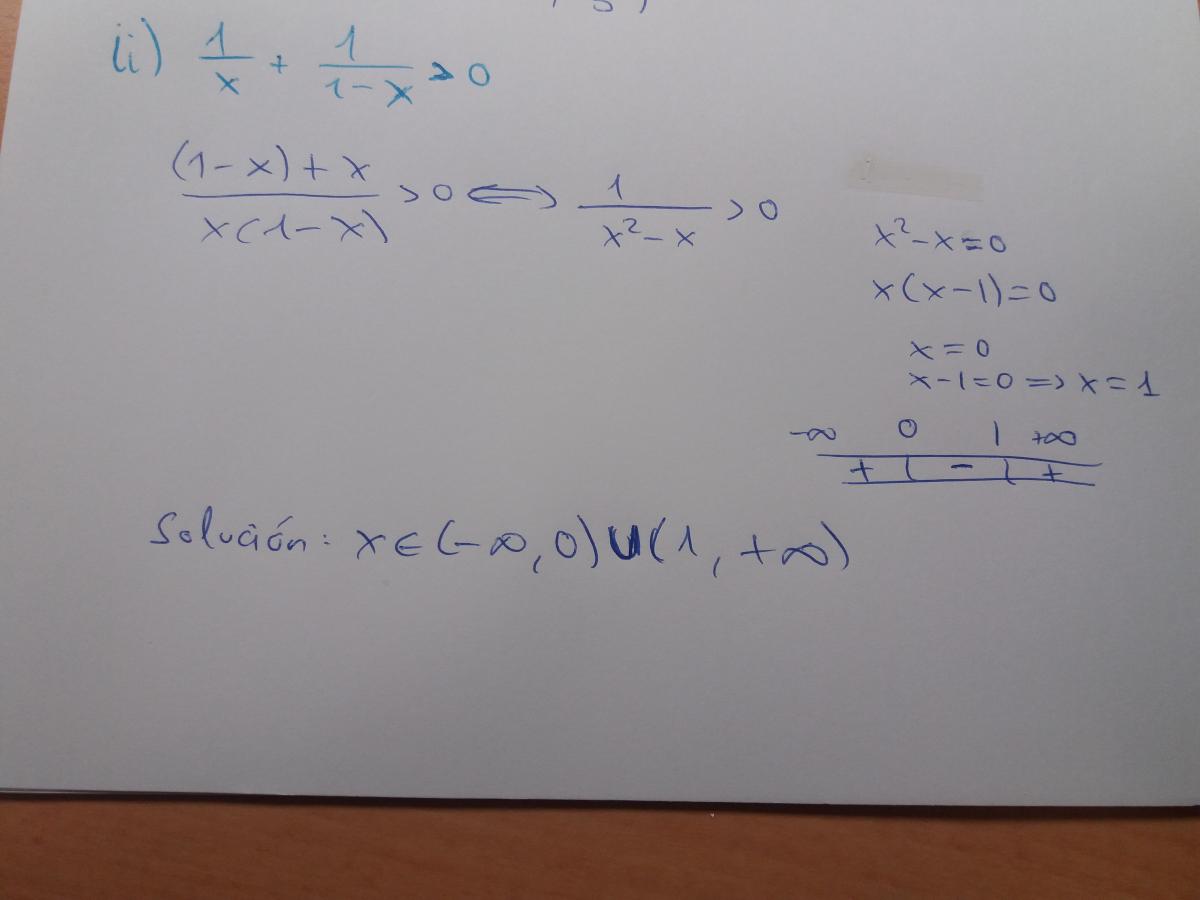 (i) 1/x + 1/(1-x) > 0
((1-x)+x)/(x(1-x)) > 0 ⟺ 1/(x²-x) > 0
x²-x=0
x(x-1)=0
x=0
x-1=0 => x=1
-∞ 0 1 +∞
+ | - | +
Solución: x∈(-∞,0)U(1,+∞)